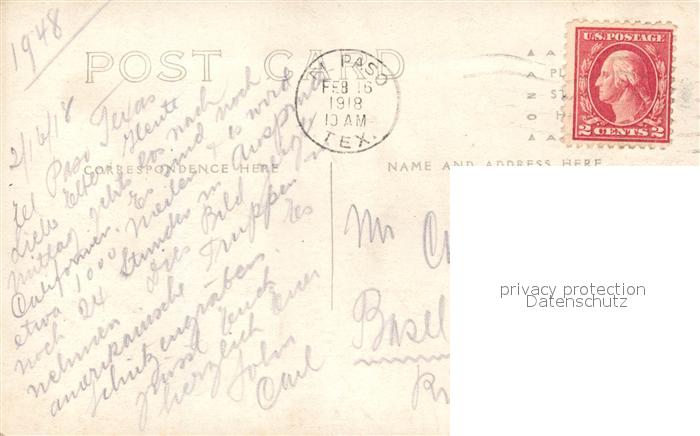 1948
POST CARD
EL PASO
FEB 16
1918
10 AM
TEX.
U.S. POSTAGE
2 CENTS 2
CORRESPONDENCE HERE
NAME AND ADDRESS HERE
2/16/18
El Paso Texas
Liebe Eltern. Heute
Mittag gehts los nach
Californien. Es sind noch
etwa 1000 Meilen & es wird
noch 24 Stunden in Anspruch
nehmen. Dies Bild zeigt
amerikanische Truppen in
Schützengräben. Es
grüsst Euch
herzlich Euer
Sohn
Carl
Mr
Basel
privacy protection
Datenschutz